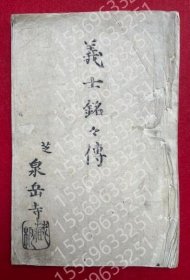 義士銘々傳
芝
泉岳寺
15569693251